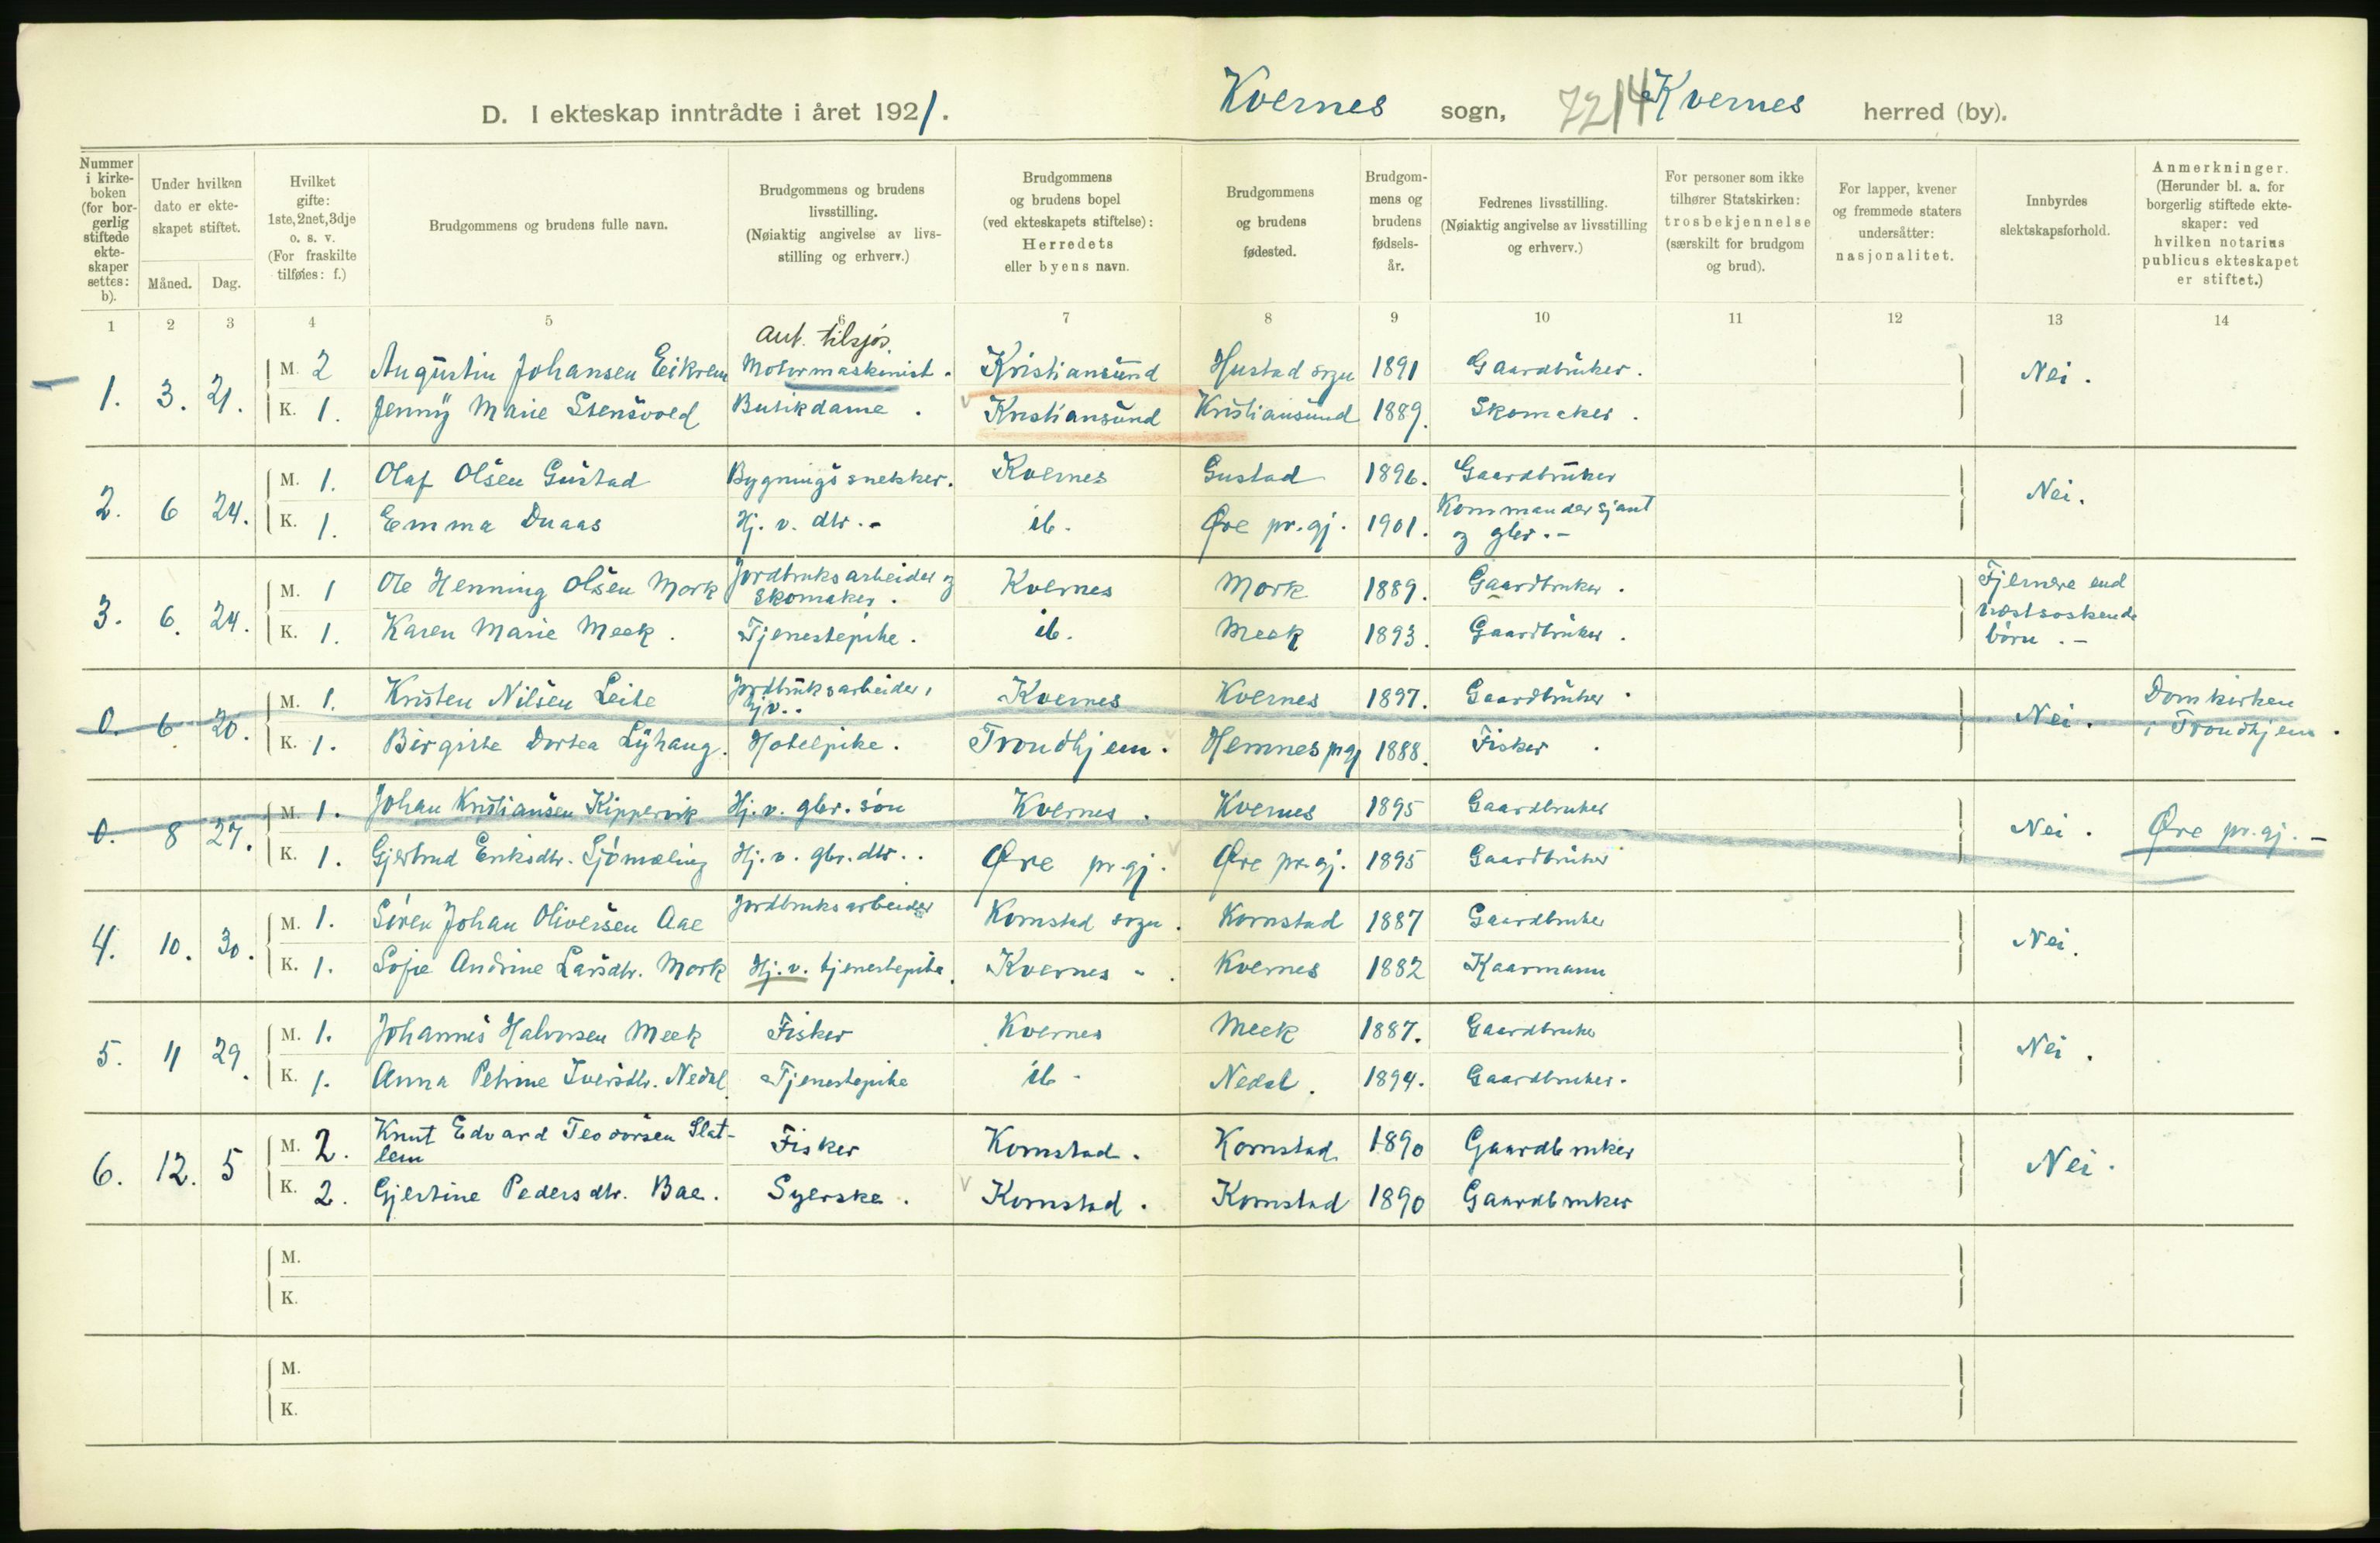 D. I ekteskap inntrådte i året 1921.
Kvernes sogn, 7214 Kvernes herred (by).
Nummer i kirkeboken (for borgerlig stiftede ekteskaper settes: b).
Under hvilken dato er ekteskapet stiftet.
Måned. Dag.
Hvilket gifte: 1ste, 2net, 3dje o. s. v. (For fraskilte tilføies: f.)
Brudgommens og brudens fulle navn.
Brudgommens og brudens livsstilling. (Nøiaktig angivelse av livsstilling og erhverv.)
Brudgommens og brudens bopel (ved ekteskapets stiftelse): Herredets eller byens navn.
Brudgommens og brudens fødested.
Brudgommens og brudens fødselsår.
Fedrenes livsstilling. (Nøiaktig angivelse av livsstilling og erhverv.)
For personer som ikke tilhører Statskirken: trosbekjennelse (særskilt for brudgom og brud).
For lapper, kvener og fremmede staters undersåtter: nasjonalitet.
Innbyrdes slektskapsforhold.
Anmerkninger. (Herunder bl. a. for borgerlig stiftede ekteskaper: ved hvilken notarius publicus ekteskapet er stiftet.)
1 2 3 4 5 6 7 8 9 10 11 12 13 14
Aut. tilsjøs.
1. 3. 21. M. 2 Augustin Johansen Eikrem Motormaskinist. Kristiansund Hustad sogn 1891 Gaardbruker. Nei.
K. 1. Jenny Marie Stensvold Butikdame. Kristiansund Kristiansund 1889. Skomaker.
2. 6 24. M. 1. Olaf Olsen Gustad Bygningssnekker. Kvernes Gustad 1896. Gaardbruker Nei.
K. 1. Emma Duaas Hj. v. dtr.- ib. Øre pr.gj. 1901. Kommandersjant og gbr.-
3. 6. 24. M. 1 Ole Henning Olsen Mork Jordbruksarbeider og skomaker. Kvernes Mork 1889. Gaardbruker. Fjernere end næstsøskendebörn.-
K. 1. Karen Marie Meek. Tjenestepike. ib. Meek 1893. Gaardbruker.
0. 6. 20. M. 1. Kristen Nilsen Leite Jordbruksarbeider, hj v.. Kvernes Kvernes 1897. Gaardbruker. Nei. Domkirken i Trondhjem.
K. 1. Birgitte Dortea Lyhaug. Hotelpike. Trondhjem. Hemnes prgj 1888. Fisker.
0. 8 27. M. 1. Johan Kristiansen Kippervik Hj. v. gbr. sön Kvernes. Kvernes 1895 Gaardbruker Nei. Øre pr.gj.-
K. 1. Gjertrud Eriksdtr. Sjömæling Hj. v. gbr. dtr.. Øre pr.gj. Øre pr.gj. 1895 Gaardbruker
4. 10. 30. M. 1. Sören Johan Oliversen Aae Jordbruksarbeider Kornstad sogn. Kornstad 1887 Gaardbruker Nei.
K. 1. Sofie Andrine Larsdtr. Mork Hj. v. tjenestepike. Kvernes " . Kvernes 1882 Kaarmann
5. 11 29. M. 1. Johannes Halvorsen Meek Fisker Kvernes Meek 1887. Gaardbruker Nei.
K. 1. Anna Petrine Iversdtr. Nedal Tjenestepike ib - Nedal. 1894. Gaardbruker.
6. 12. 5 M. 2. Knut Edvard Teodorsen Slatlem Fisker Kornstad. Kornstad 1890 Gaardbruker Nei.
K. 2. Gjertine Pedersdtr. Bae. Syerske. Kornstad. Kornstad 1890 Gaardbruker
M.
K.
M.
K.